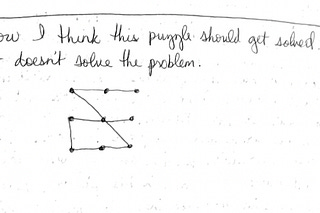 ow I think this puzzle should get solved.
doesn't solve the problem.